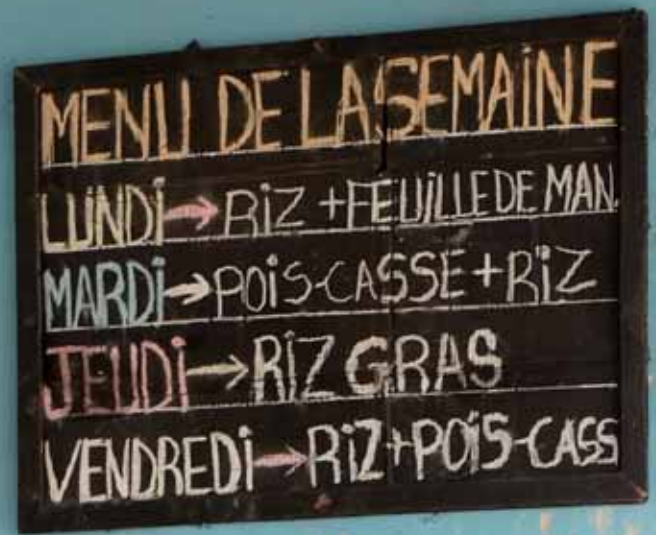 MENU DE LA SEMAINE
LUNDi → RiZ + FEUILLE DE MAN.
MARDi → POiS-CASSE + RiZ
JEUDi → RiZ GRAS
VENDREDi → RiZ + POiS-CASS